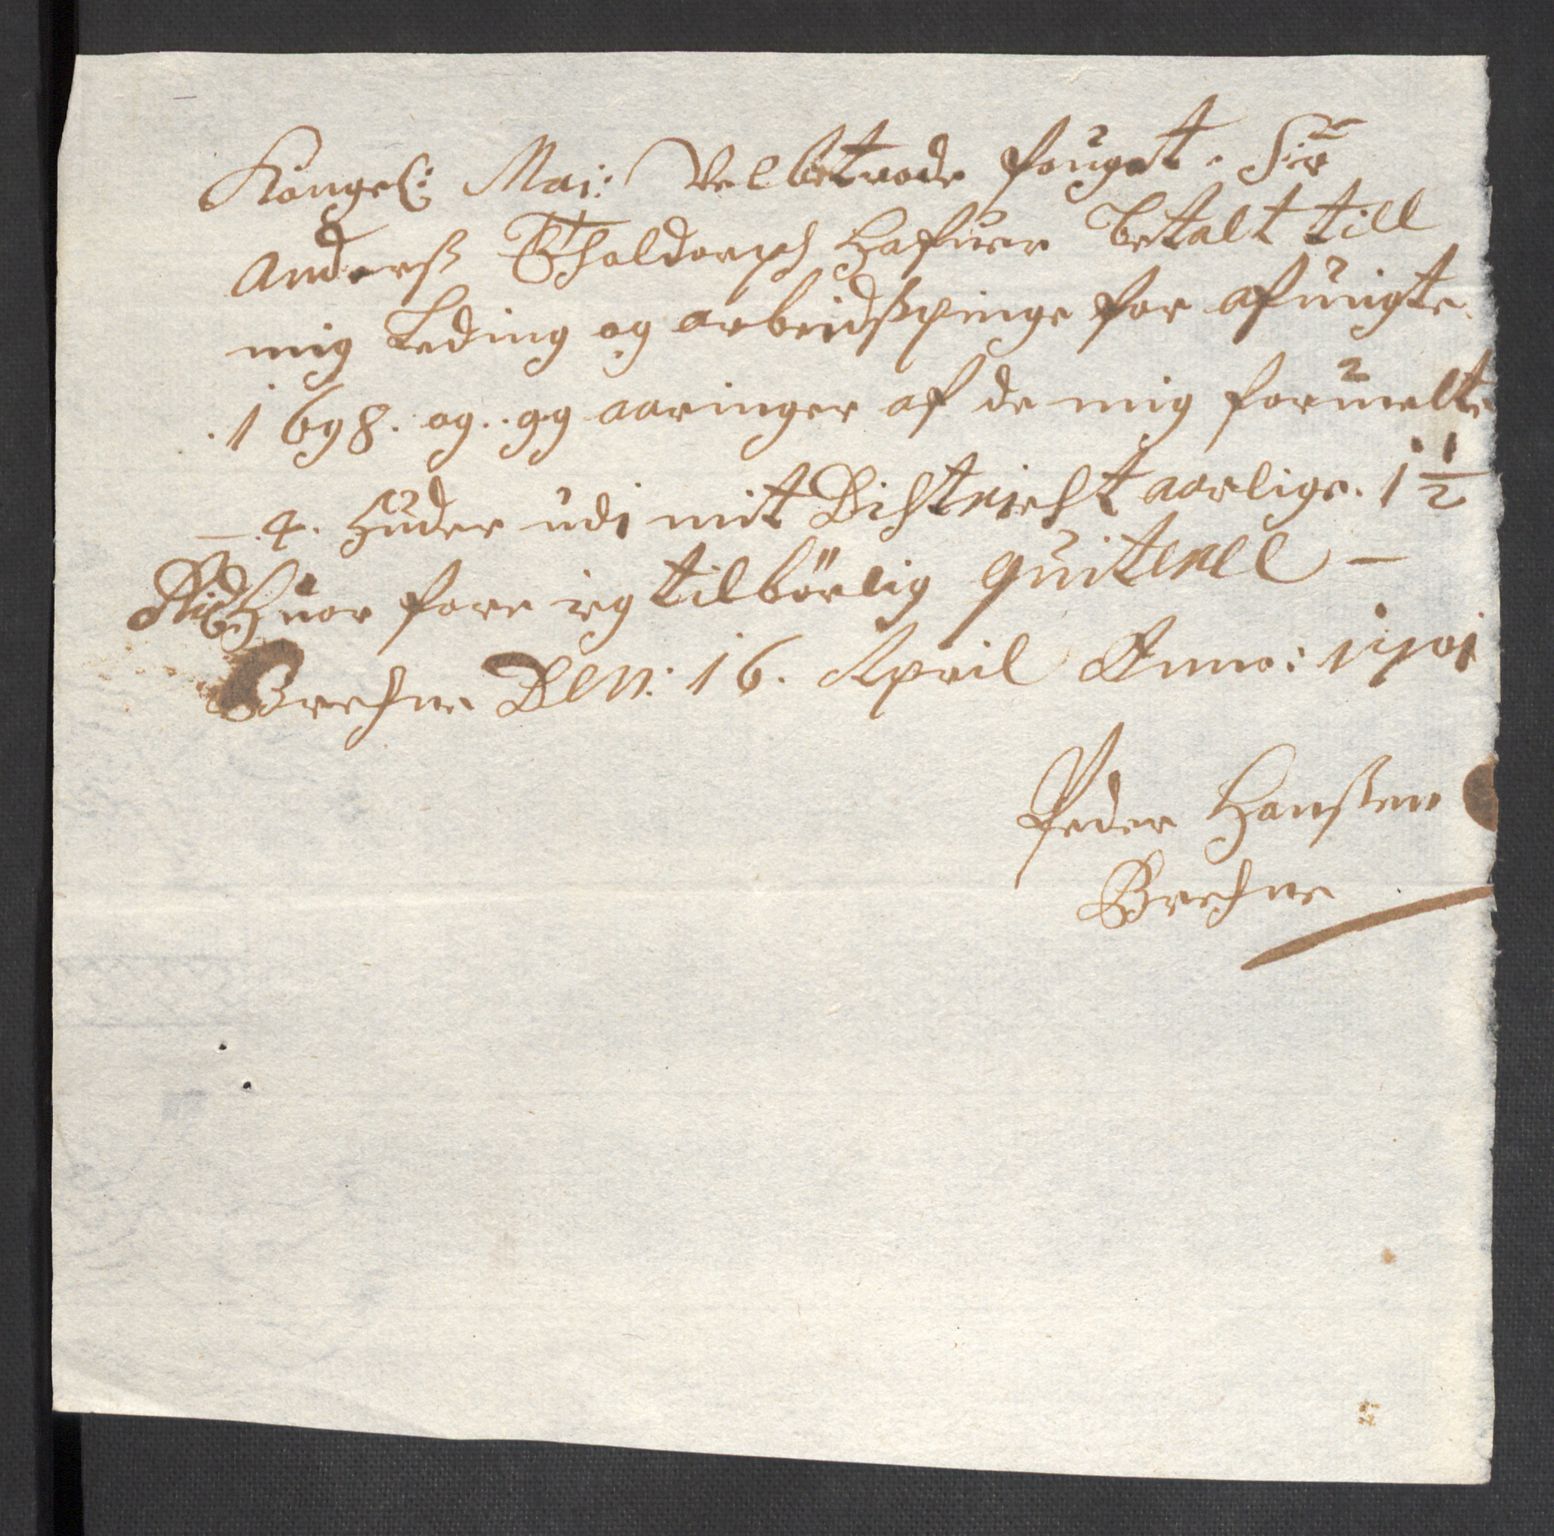 Kongel: Mai: Velbetrode fougat. Sr
Anderß Tholdorph Hafuer Betalt till
mig Leding og arbeidßpinge for afuigte
.1698. og .99 aaringer af de mig formelte
— .4. Huder udi mit Districht aarlige. 1 1/2
Rixd Huor fore ieg tilbörlig quiterer —
Brechne Den: 16. April Anno: 1701
Peder Hanßen
Brechne